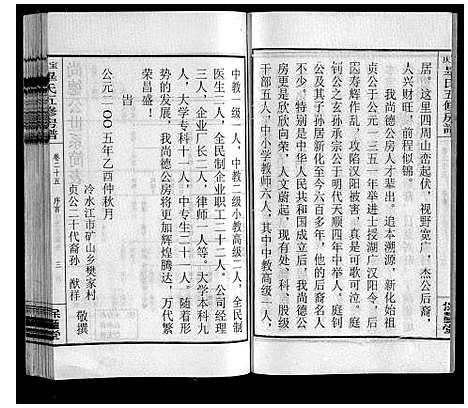 居。这里四周山峦起伏，视野宽广，杰公后裔，
人兴财旺，前程似锦。
我尚德公房人才辈出。追本溯源，新化始祖
贞公于公元一三五一年举进士授湖广汉阳令，
因寿辉作乱，攻陷汉阳被害，真是可歌可泣。庭
钊公之玄孙承宗公于明代天顺四年中举人。庭钊
公以及其子孙至今六百多年，他的后裔名人
不少，特别是中华人民共和国成立后，我尚德公
房更是欣欣向荣，人文蔚起。现有处、科、股级
干部十八人，中小学教师六人，其中中教高级一人，
中教一级一人，中教二级小教高级二人，全民制
医生二人，全民制企业职工二十二人，公司经理
三人，企业厂长二人，律师一人等。大学本科九
人，大学专科十一人，中专生二十一人。随着形
势的发展，我尚德公房将更加辉煌腾达，万代繁
荣昌盛！
旹
公元二〇〇五年乙酉仲秋月
冷水江市矿山乡樊家村
贞公二十代裔孙 猷祥 敬撰
卷二十五 序言 三